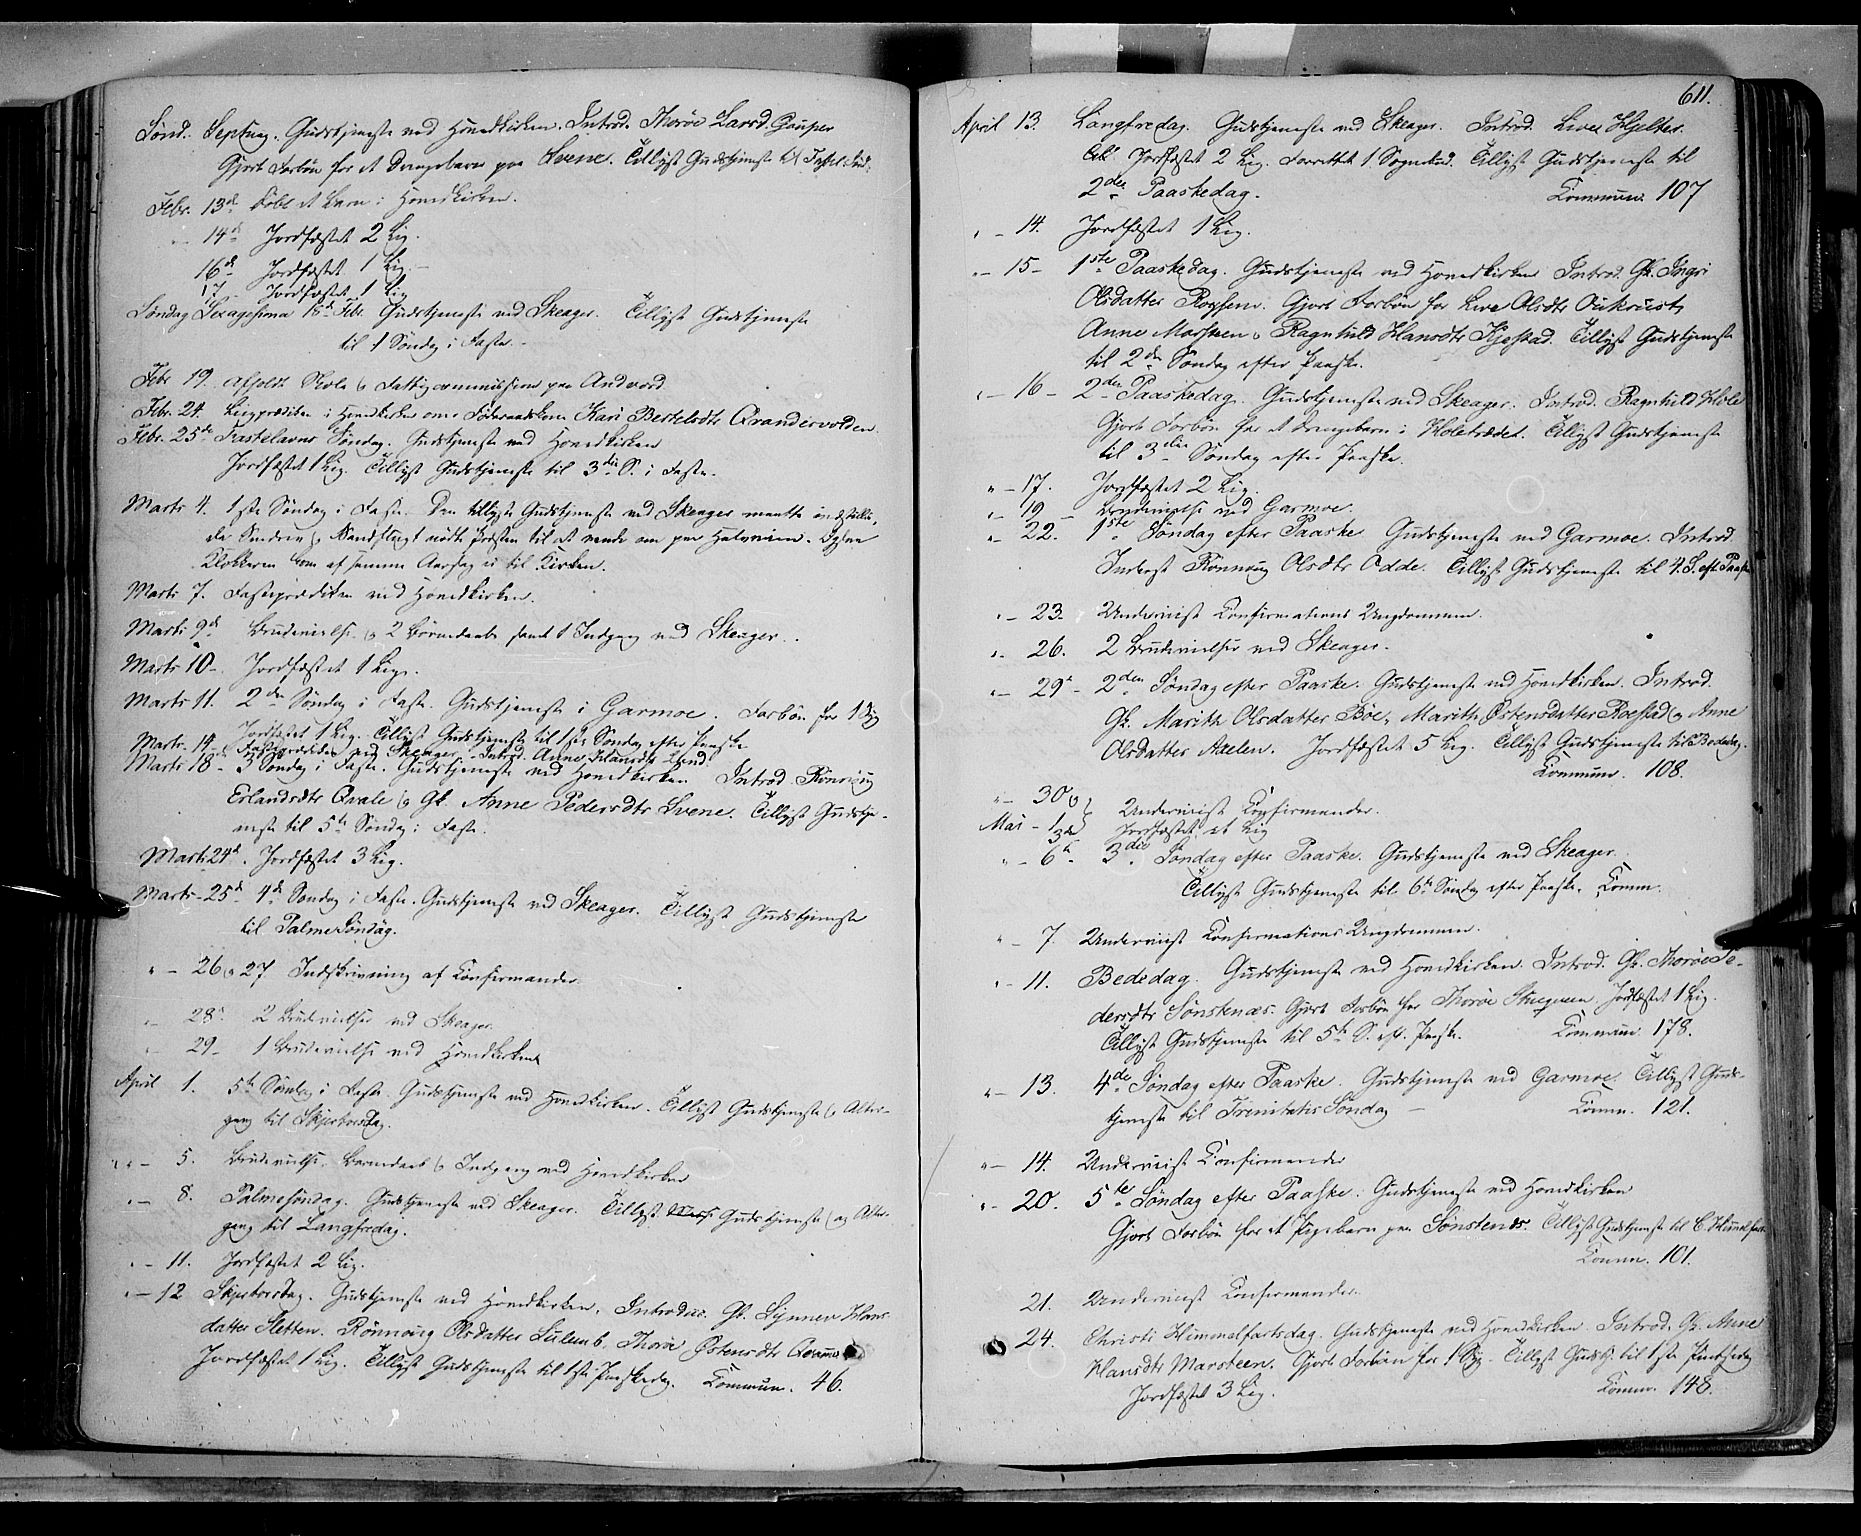 Sønd. Septuag. Gudstjeneste ved Hovedkirken. Introd. Thorøe Larsd. Gaupar
Gjort Forbøn for et Drengebarn paa Svene. Tillyst Gudstjeneste til Fastel. Sønd.
Febr. 13d Døbt et Barn i Hovedkirken.
" 14d Jordfæstet 2 Lig.
16d Jordfæstet 1 Lig.
17 Jordfæstet 1 Lig
Søndag Sexagesima 18d Febr. Gudstjeneste ved Skeager. Tillyst Gudstjeneste
til 1 Søndag i Faste.
Febr 19. afholdt Skole og Fattigcommission paa Andvord
Febr. 24. Ligprædiken i Hovedkirken over Føderaadskone Kari Bertelsdtr Qvandersvolden.
Febr. 25de Fastelavns Søndag. Gudstjeneste ved Hovedkirken
Jordfæstet 1 Lig. Tillyst Gudstjeneste til 3die S. i Faste.
Marts 4. 1ste Søndag i Faste. Den tillyste Gudstjeneste ved Skeager maatte indstilles,
da Sneedrev og Vandflugt nødte Præsten til at vende om paa Halvveien.
Klokkeren kom af samme Aarsag ei til Kirken.
Marts 7. Fasteprædiken ved Hovedkirken.
Marts 9d Brudevielse og 2 Børnedaab samt 1 Indgang ved Skeager.
Marts 10 Jordfæstet 1 Lig.
Marts 11. 2den Søndag i Faste. Gudstjeneste i Garmoe. Forbøn for 1 Syg
Jordfæstet 1 Lig. Tillyst Gudstjeneste til 1ste Søndag efter Paaske
Marts 14d Fasteprædiken ved Skeager. Introd. Anne Hansdtr Sand
Marts 18 3 Søndag i Faste. Gudstjeneste ved Hovedkirken Introd Rønnoug
Erlandsdtr Qvale og Gk. Anne Pedersdtr Svene. Tillyst Gudstje-
neste til 5te Søndag i Faste.
Marts 24d. Jordfæstet 3 Lig.
Marts 25d 4de Søndag i Faste. Gudstjeneste ved Skeager. Tillyst Gudstjeneste
til Palme Søndag.
" 26 og 27 Indskrivning af Confirmander
" 28d 2 Brudevielser ved Skeager.
29 1 Brudevielse ved Hovedkirken
April 1. 5te Søndag i Faste. Gudstjeneste ved Hovedkirken. Tillyst Gudstjeneste og Alter-
gang til Skjertorsdag.
" 5. Brudevielse, Barnedaab og Indgang ved Hovedkirken
" 8. Palmesøndag. Gudstjeneste ved Skeager. Tillyst Gudstjeneste og Alter-
gang til Langfredag.
" 11. Jordfæstet 2 Lig.
" 12 Skjertorsdag. Gudstjeneste ved Hovedkirken. Introduc. Gk. Synnev Hans
datter Sletten. Rønnoug Olsdatter Sulem, Thora Østensdtr Qvamme
Jordfæstet 1 Lig. Tillyst Gudstjeneste til 1ste Paaskedag. Commun. 46.
611.
April 13. Langfredag. Gudstjeneste ved Skeager. Introd. Live Hjeltar.
Jordfæstet 2 Lig. Forrettet 1 Sognebud. Tillyst Gudstjeneste til
2den Paaskedag. Commun. 107
" 14. Jordfæstet 1 Lig.
" 15 1ste Paaskedag. Gudstjeneste ved Hovedkirken Introd. Gk. Ingri
Olsdatter Roshem. Gjort Forbøn for Live Olsdtr Oukrust,
Anne Marsteen og Ragnhild Hansdtr Kjestad. Tillyst Gudstjeneste
til 2den Søndag efter Paaske.
" 16 2den Paaskedag. Gudstjeneste ved Skeager. Introd. Ragnhild Hole
Gjort Forbøn for et Drengebarn i Holetrædet. Tillyst Gudstjeneste
til 3die Søndag efter Paaske.
" 17. Jordfæstet 2 Lig.
" 19 Brudevielse ved Garmoe.
" 22. 1ste Søndag efter Paaske Gudstjeneste ved Garmoe. Introd.
Inderst Rønnoug Olsdtr Odde. Tillyst Gudstjeneste til 4. S. eft. Paaske
" 23. Underviist Confirmations Ungdommen.
" 26. 2 Brudevielser ved Skeager.
" 29 2den Søndag efter Paaske. Gudstjeneste ved Hovedkirken. Introd.
Gk. Marith Olsdatter Bøe, Marith Østensdatter Roestad og Anne
Olsdatter Axelen. Jordfæstet 5 Lig. Tillyst Gudstjeneste til Bededag.
Commun. 108.
" 30 og Underviist Confirmander.
Mai 1
3d Jordfæstet et Lig
" 6te 3die Søndag efter Paaske. Gudstjeneste ved Skeager.
Tillyst Gudstjeneste til 6te Søndag efter Paaske. Comm.
" 7. Underviist Confirmations Ungdommen.
" 11. Bededag. Gudstjeneste ved Hovedkirken. Introd. Gk. Thorøe Pe-
dersdtr Sønstenæs. Gjort Forbøn for Thorøe Stuegueen Jordfæstet 1 Lig.
Tillyst Gudstjeneste til 5te S. eft. Paaske. Commun. 178.
" 13. 4de Søndag efter Paaske. Gudstjeneste ved Garmoe. Tillyst Guds-
tjeneste til Trinitatis Søndag Comm. 121.
" 14. Underviist Confirmander
" 20. 5te Søndag efter Paaske. Gudstjeneste ved Hovedkirken
Gjort Forbøn for et Pigebarn paa Sønstenæs. Tillyst Gudstjeneste til C. Himmelfart
Comm. 101.
21. Underviist Confirmander.
24. Christi Himmelfartsdag. Gudstjeneste ved Hovedkirken. Introd. Gk. Anne
Hansdtr Marsteen. Gjort Forbøn for 1 Syg. Tillyst Gudstj. til 1ste Pintsedag
Jordfæstet 3 Lig. Comm. 148.